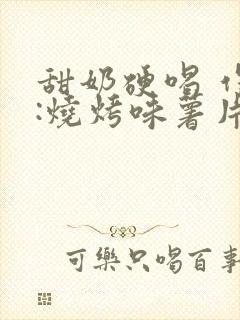 甜奶硬唱
:燒烤味薯片
可樂只喝百事